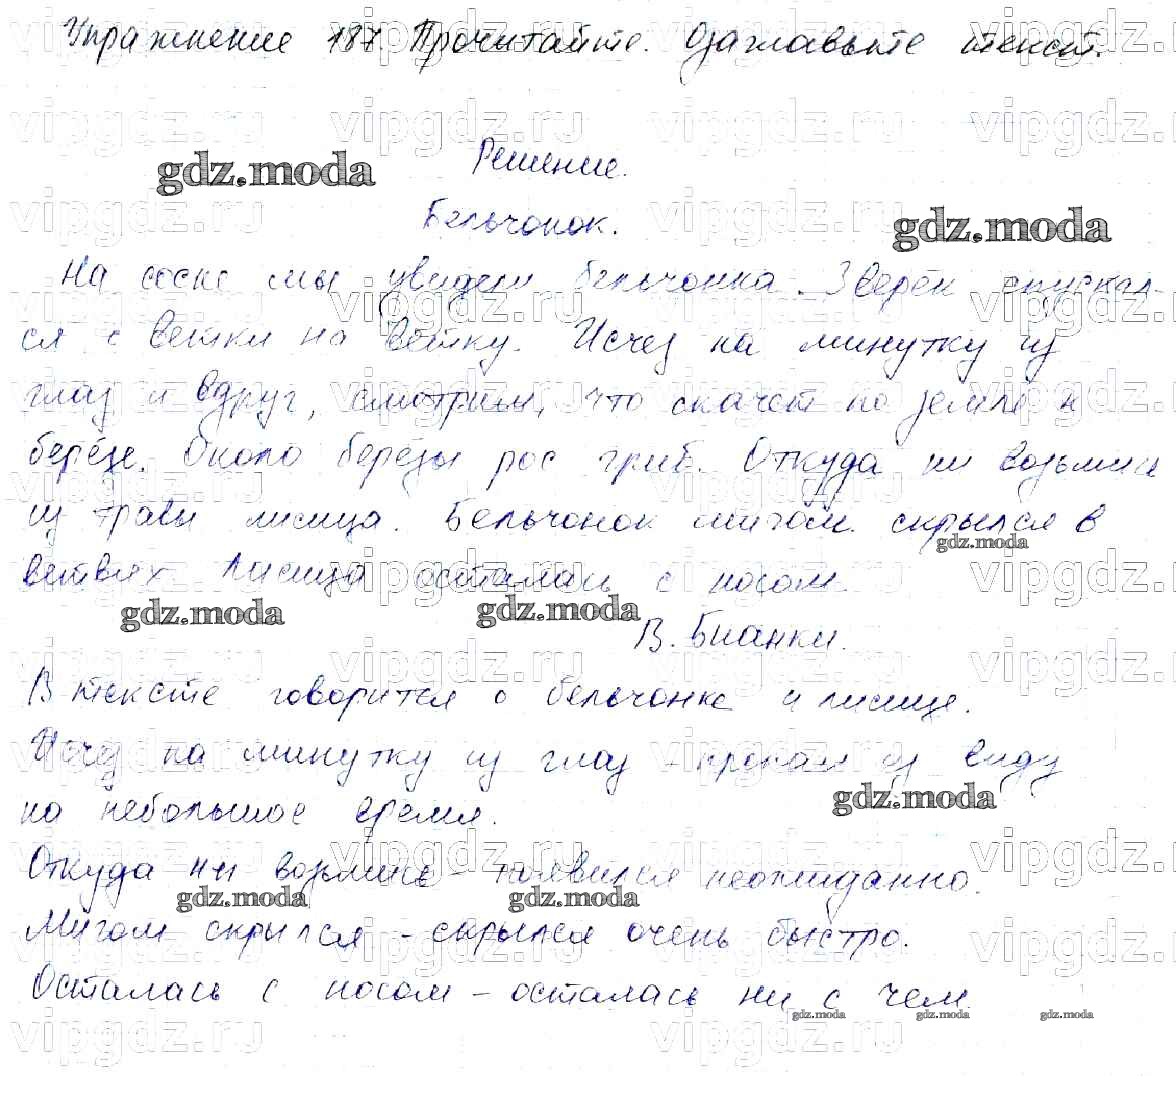 Упражнение 187. Прочитайте. Озаглавьте текст.
Решение.
Бельчонок.
На сосне мы увидели бельчонка. Зверёк спускал-
ся с ветки на ветку. Исчез на минутку из
глаз и вдруг, смотрим, что скачет по земле к
берёзе. Около берёзы рос гриб. Откуда ни возьмись
из травы лисица. Бельчонок мигом скрылся в
ветвях. Лисица осталась с носом.
В. Бианки.
В тексте говорится о бельчонке и лисице.
Исчез на минутку из глаз - пропал из виду
на небольшое время.
Откуда ни возьмись - появился неожиданно.
Мигом скрылся - скрылся очень быстро.
Осталась с носом - осталась ни с чем.
gdz.moda
gdz.moda
gdz.moda
gdz.moda
gdz.moda
gdz.moda
gdz.moda
gdz.moda
gdz.moda
gdz.moda
gdz.moda
vipgdz.ru